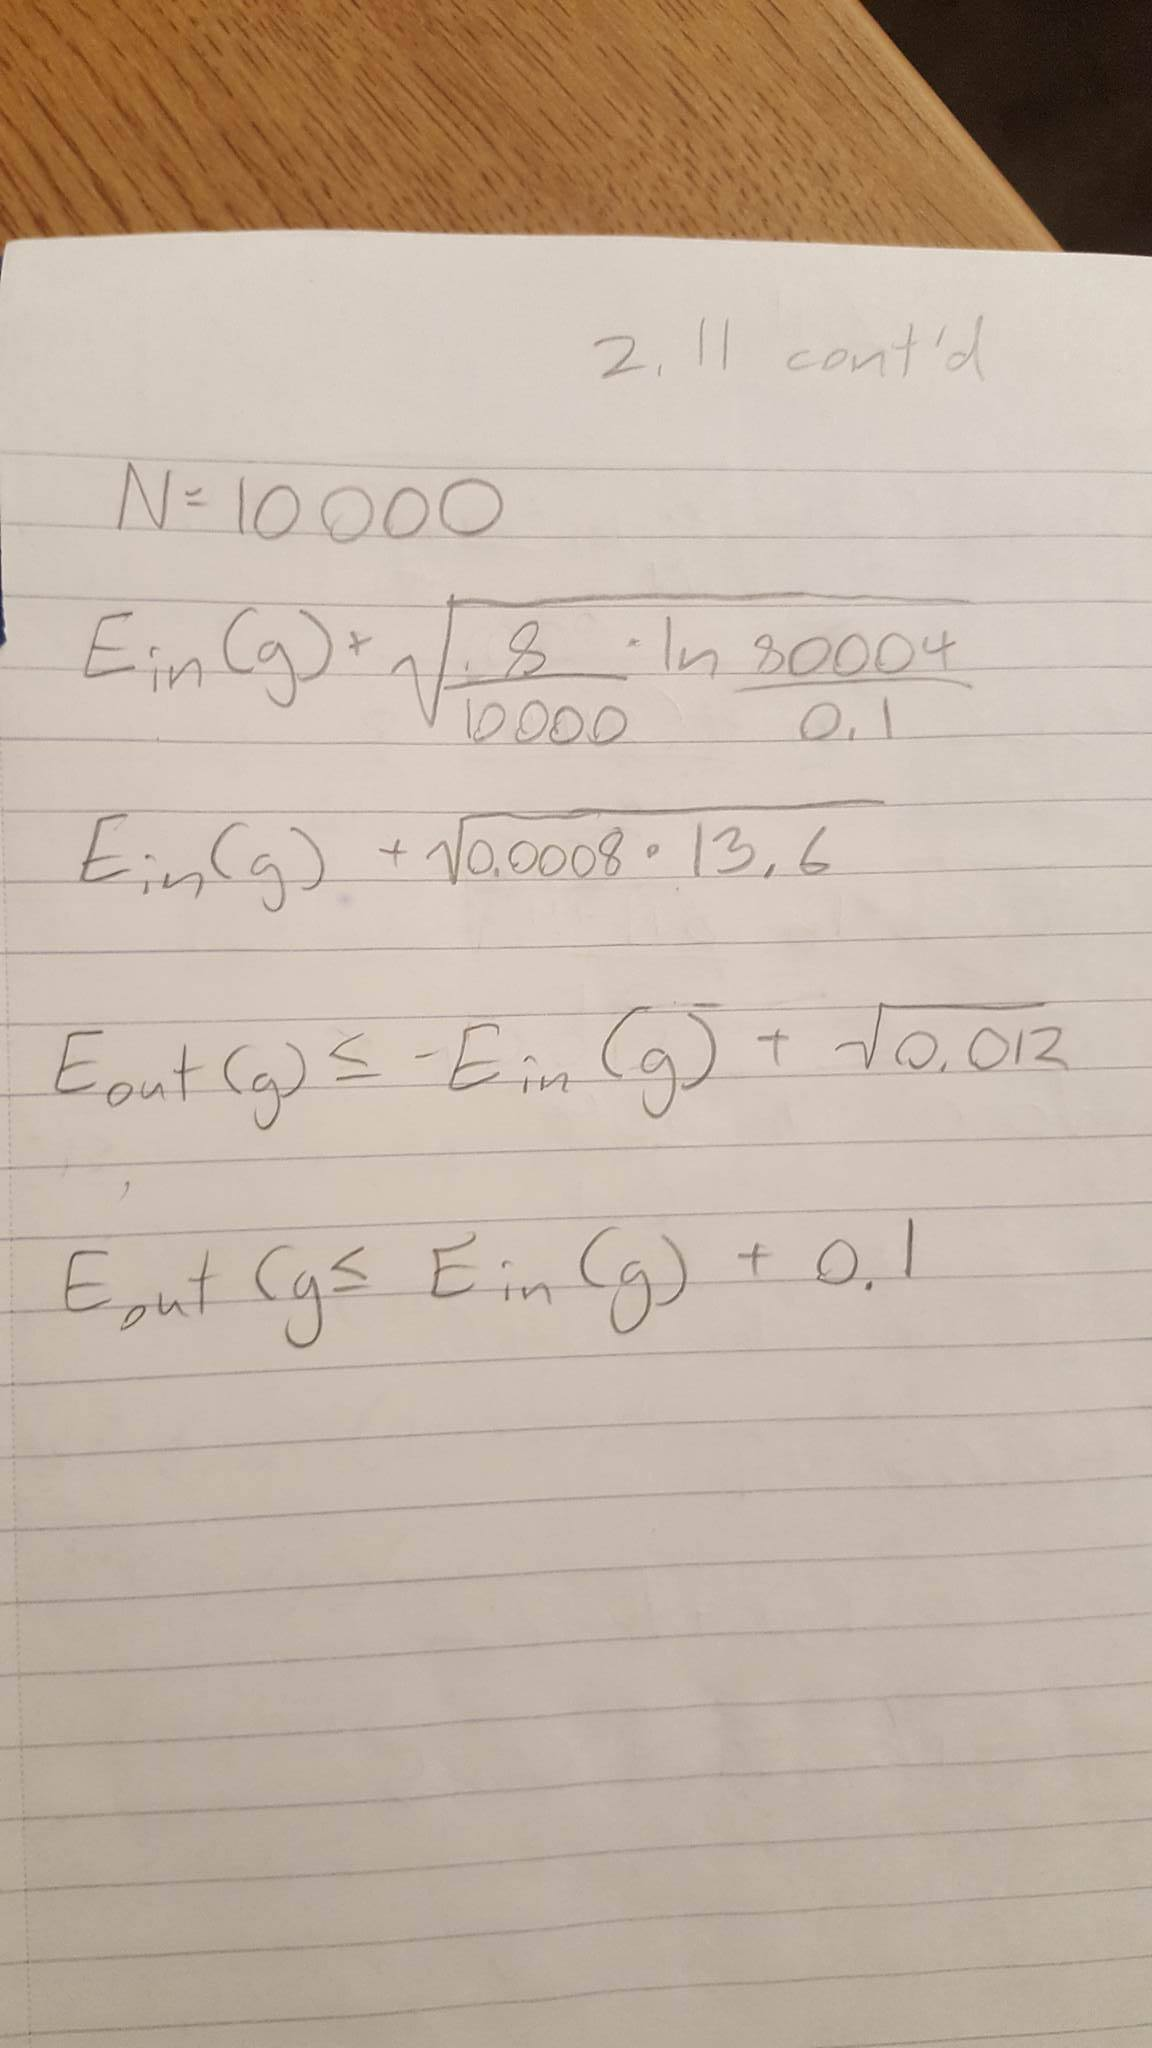 2.11 cont'd
N=10000
Ein(g)+√8/10000 · ln 80004/0.1
Ein(g) + √0.0008 · 13,6
Eout(g) ≤ -Ein(g) + √0.012
Eout(g≤ Ein(g) + 0.1